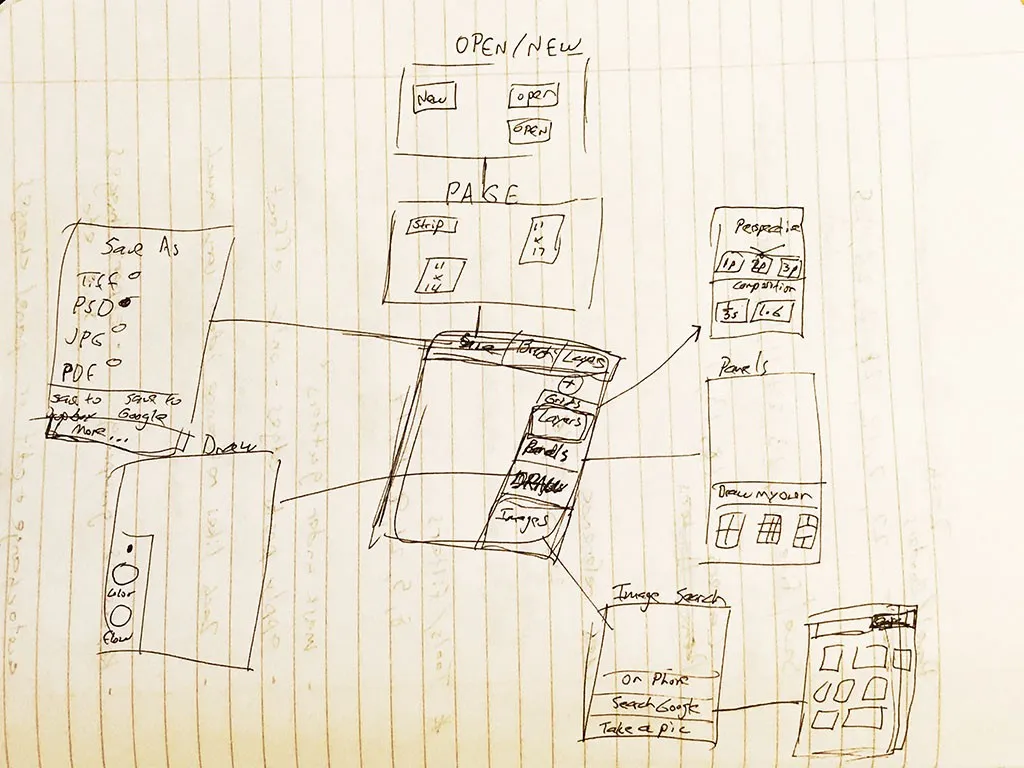 OPEN/NEW
New
open
OPEN
PAGE
Strip
11
x
17
11
x
14
Save As
Tiff
PSD
JPG
PDF
save to
save to
Google
More...
Save
Layers
+
Layers
Panels
DRAW
Images
Perspective
1p
2p
3p
Composition
1.6
Panels
Draw my own
Draw
Color
Flow
Image Search
On Phone
Search Google
Take a pic